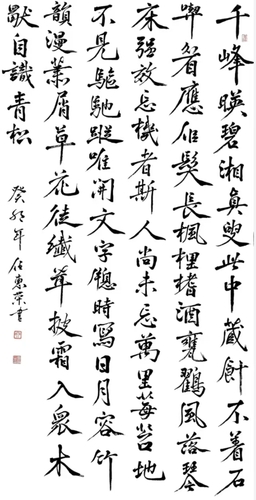 千峰暎碧湘真叟此中藏餠不着石
喫眉應佀髮長楓檉楮酒甕鸖風落琴
床强放忘機者斯人尚未忘萬里莓苔地
不見驅馳蹤唯開文字窗時寫日月容竹
韻漫蕭屑草花徒纖茸披霜入衆木
獸自識青松
癸卯年任惠荣書